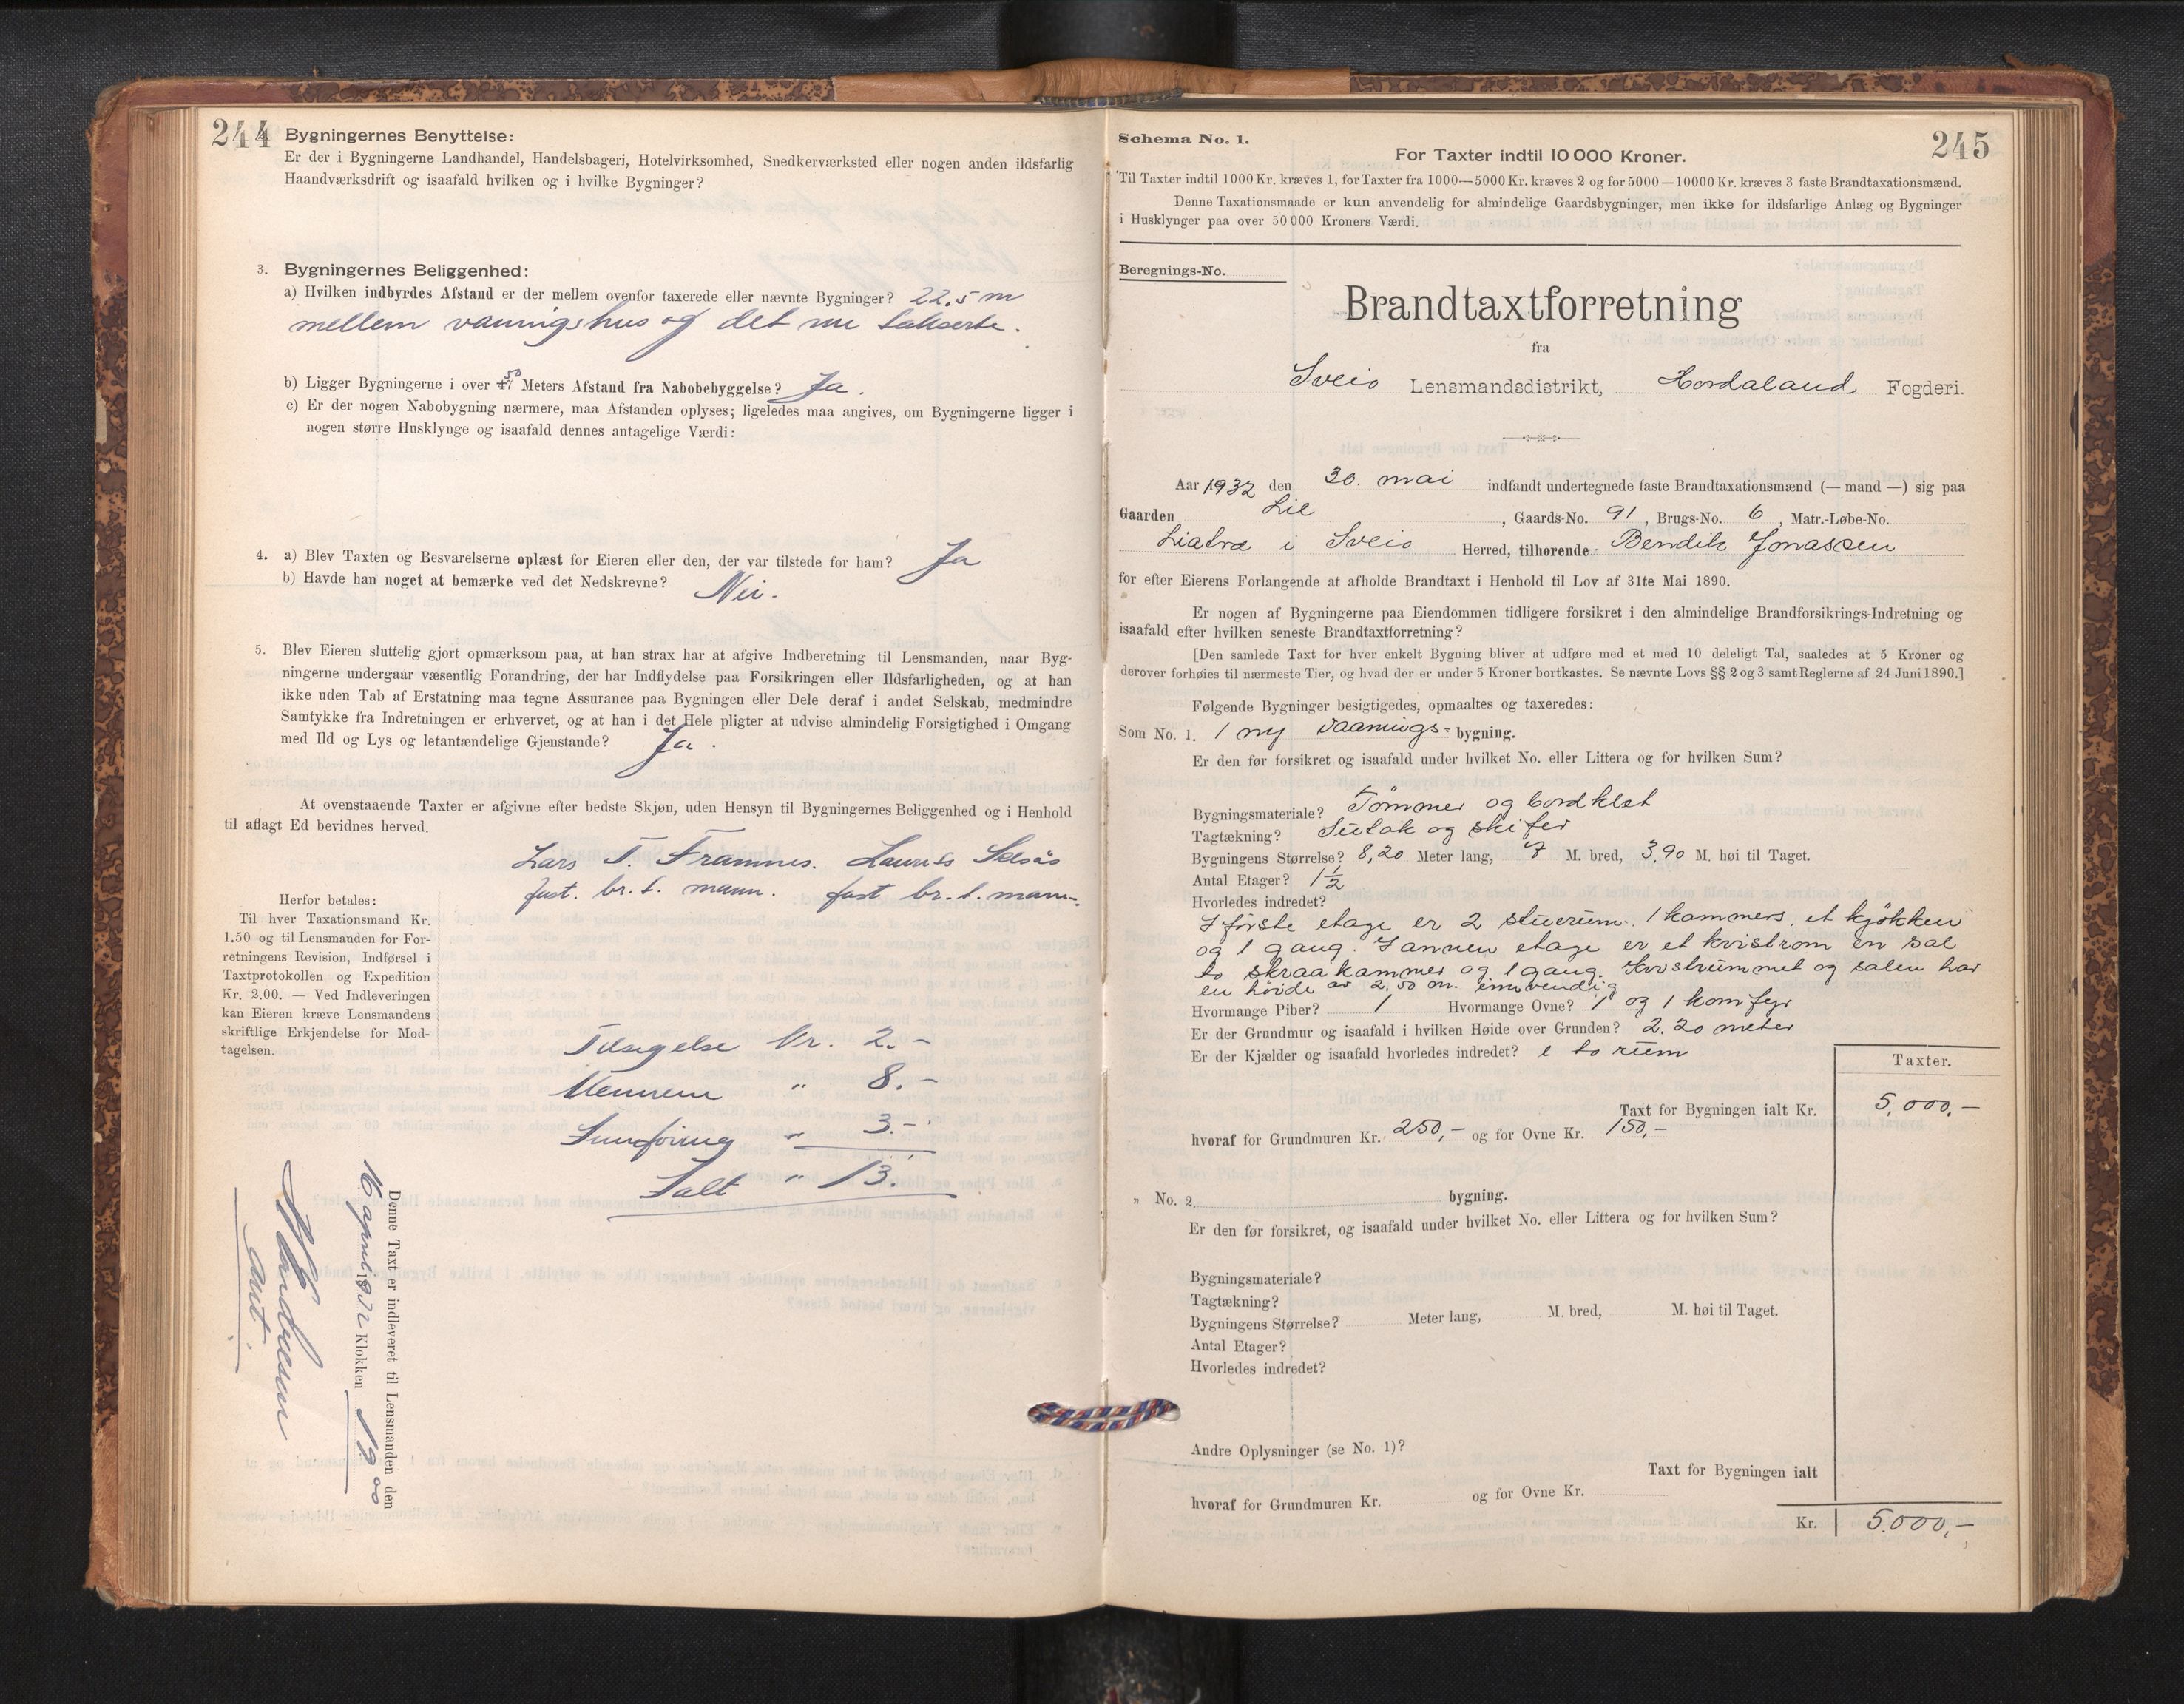 244
Bygningernes Benyttelse:
Er der i Bygningerne Landhandel, Handelsbageri, Hotelvirksomhed, Snedkerværksted eller nogen anden ildsfarlig
Haandværksdrift og isaafald hvilken og i hvilke Bygninger?
3. Bygningernes Beliggenhed:
a) Hvilken indbyrdes Afstand er der mellem ovenfor taxerede eller nævnte Bygninger? 22.5 m
mellem vaaningshus og det nu takserte.
b) Ligger Bygningerne i over 47 50 Meters Afstand fra Nabobebyggelse? Ja.
c) Er der nogen Nabobygning nærmere, maa Afstanden oplyses; ligeledes maa angives, om Bygningerne ligger i
nogen større Husklynge og isaafald dennes antagelige Værdi:
4. a) Blev Taxten og Besvarelserne oplæst for Eieren eller den, der var tilstede for ham? Ja
b) Havde han noget at bemærke ved det Nedskrevne? Nei.
5. Blev Eieren sluttelig gjort opmærksom paa, at han strax har at afgive Indberetning til Lensmanden, naar Byg-
ningerne undergaar væsentlig Forandring, der har Indflydelse paa Forsikringen eller Ildsfarligheden, og at han
ikke uden Tab af Erstatning maa tegne Assurance paa Bygningen eller Dele deraf i andet Selskab, medmindre
Samtykke fra Indretningen er erhvervet, og at han i det Hele pligter at udvise almindelig Forsigtighed i Omgang
med Ild og Lys og letantændelige Gjenstande? Ja.
At ovenstaaende Taxter er afgivne efter bedste Skjøn, uden Hensyn til Bygningernes Beliggenhed og i Henhold
til aflagt Ed bevidnes herved.
Lars T. Framnes. Laurits Selsås
fast. br. t. mann. fast br. t. mann.
Herfor betales:
Til hver Taxationsmand Kr.
1.50 og til Lensmanden for For-
retningens Revision, Indførsel i
Taxtprotokollen og Expedition
Kr. 2.00. — Ved Indleveringen
kan Eieren kræve Lensmandens
skriftlige Erkjendelse for Mod-
tagelsen.
Tilsigelse kr. 2.-
Mennene " 8.-
Innføring " 3.-
Ialt " 13.
Denne Taxt er indleveret til Lensmanden den
16 april 1932 Klokken 19.00
Andreesen
245
Schema No. 1.
For Taxter indtil 10 000 Kroner.
Til Taxter indtil 1000 Kr. kræves 1, for Taxter fra 1000—5000 Kr. kræves 2 og for 5000—10000 Kr. kræves 3 faste Brandtaxationsmænd.
Denne Taxationsmaade er kun anvendelig for almindelige Gaardsbygninger, men ikke for ildsfarlige Anlæg og Bygninger
i Husklynger paa over 50 000 Kroners Værdi.
Beregnings-No.
Brandtaxtforretning
fra
Sveio Lensmandsdistrikt, Hordaland Fogderi.
Aar 1932 den 30. mai indfandt undertegnede faste Brandtaxationsmænd (— mand —) sig paa
Gaarden Lie, Gaards-No. 91, Brugs-No. 6, Matr.-Løbe-No.
Liabræ i Sveio Herred, tilhørende Bendik Jonassen
for efter Eierens Forlangende at afholde Brandtaxt i Henhold til Lov af 31te Mai 1890.
Er nogen af Bygningerne paa Eiendommen tidligere forsikret i den almindelige Brandforsikrings-Indretning og
isaafald efter hvilken seneste Brandtaxtforretning?
[Den samlede Taxt for hver enkelt Bygning bliver at udføre med et med 10 deleligt Tal, saaledes at 5 Kroner og
derover forhøies til nærmeste Tier, og hvad der er under 5 Kroner bortkastes. Se nævnte Lovs §§ 2 og 3 samt Reglerne af 24 Juni 1890.]
Følgende Bygninger besigtigedes, opmaaltes og taxeredes:
Som No. 1. 1 ny vaanings- bygning.
Er den før forsikret og isaafald under hvilket No. eller Littera og for hvilken Sum?
Bygningsmateriale? Tømmer og bordkledt
Tagtækning? Sutak og skifer
Bygningens Størrelse? 8,20 Meter lang, 7 M. bred, 3,90 M. høi til Taget.
Antal Etager? 1 1/2
Hvorledes indredet?
I første etage er 2 stuerum. 1 kammers. et kjøkken
og 1 gang. I annen etage er et kvistrom en sal
to skraakammer og 1 gang. Kvistrummet og salen har
en høide av 2.50 m. innvendig
Hvormange Piber? 1 Hvormange Ovne? 1 og 1 komfyr
Er der Grundmur og isaafald i hvilken Høide over Grunden? 2.20 meter
Er der Kjælder og isaafald hvorledes indredet? i to rum
Taxter.
Taxt for Bygningen ialt Kr. 5,000,-
hvoraf for Grundmuren Kr. 250,- og for Ovne Kr. 150,-
" No. 2. bygning.
Er den før forsikret, og isaafald under hvilket No. eller Littera og for hvilken Sum?
Bygningsmateriale?
Tagtækning?
Bygningens Størrelse? Meter lang, M. bred, M. høi til Taget.
Antal Etager?
Hvorledes indredet?
Andre Oplysninger (se No. 1)?
Taxt for Bygningen ialt
hvoraf for Grundmuren Kr. og for Ovne Kr.
Kr. 5.000,-